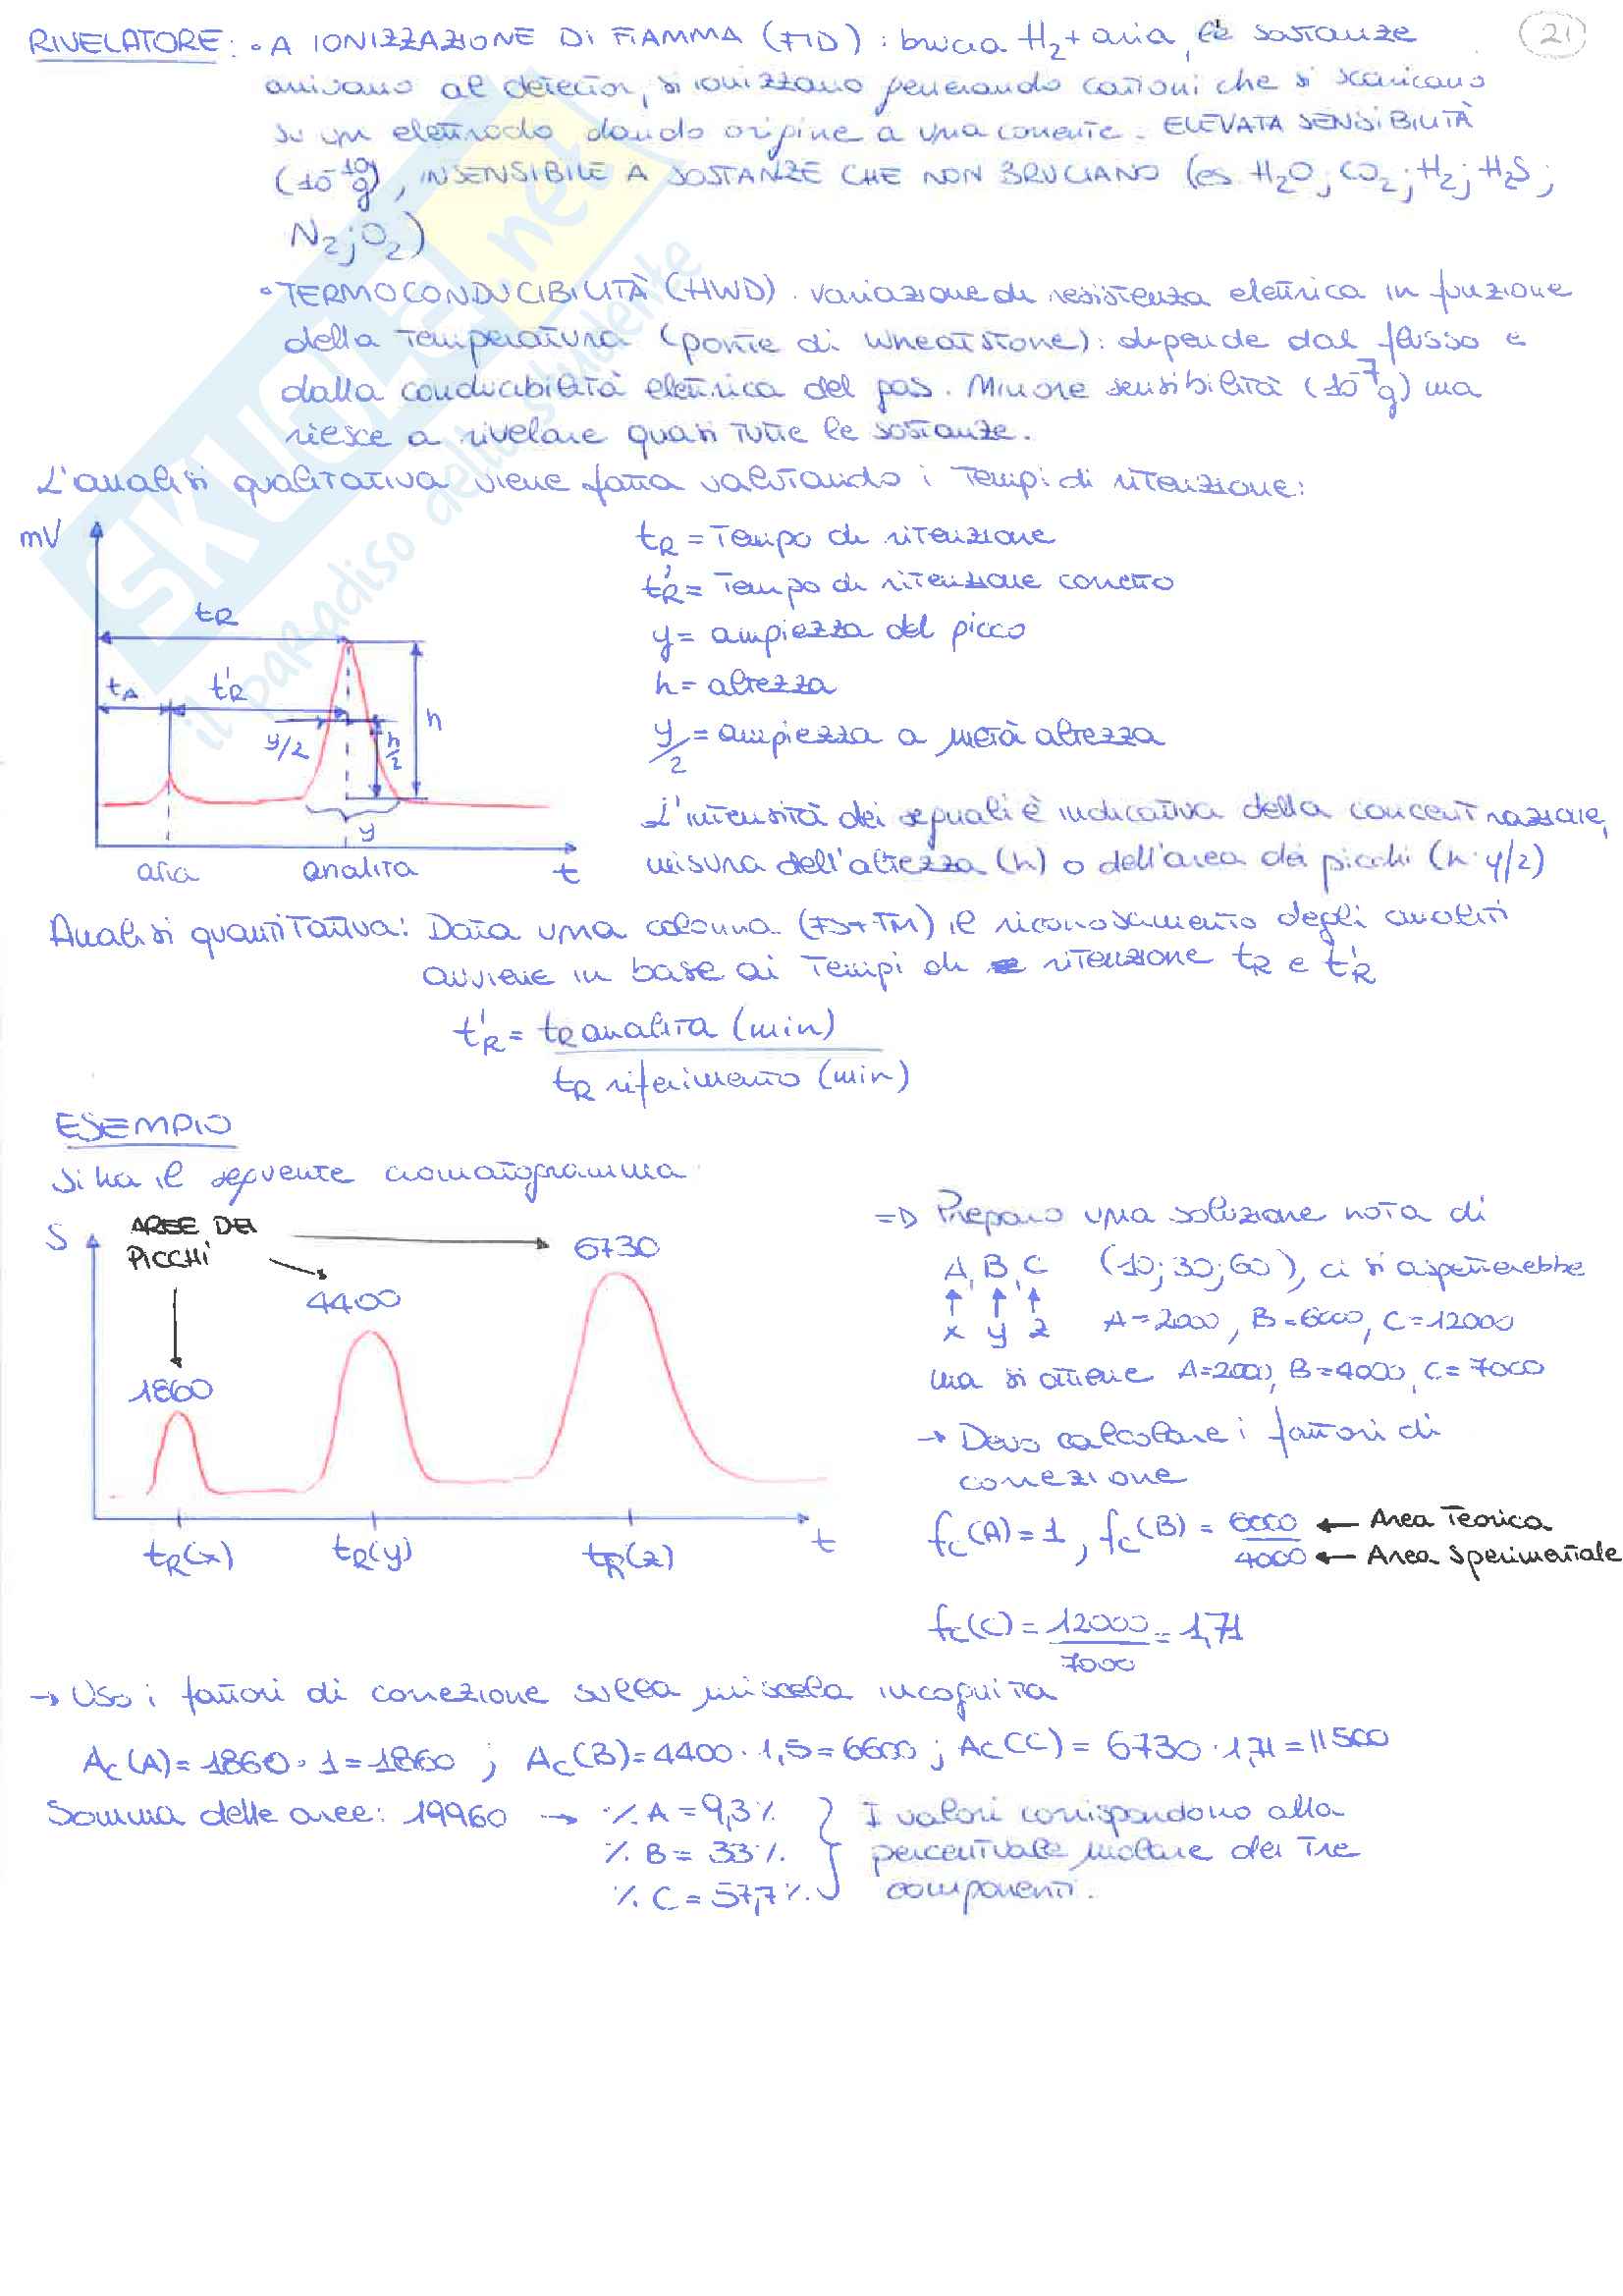 RIVELATORE: • A IONIZZAZIONE DI FIAMMA (FID): brucia H₂ + aria, le sostanze
21
arrivano al detector, si ionizzano generando cationi che si scaricano
su un elettrodo dando origine a una corrente. ELEVATA SENSIBILITÀ
(10⁻¹⁰g), INSENSIBILE A SOSTANZE CHE NON BRUCIANO (es. H₂O; CO₂; H₂; H₂S;
N₂; O₂)
• TERMOCONDUCIBILITÀ (HWD). variazione di resistenza elettrica in funzione
della temperatura (ponte di Wheatstone): dipende dal flusso e
dalla conducibilità elettrica del gas. Minore sensibilità (10⁻⁷g) ma
riesce a rivelare quasi tutte le sostanze.
L'analisi qualitativa viene fatta valutando i tempi di ritenzione:
mV
tR
tA
t'R
y/2
h/2
h
y
aria
analita
t
tR = Tempo di ritenzione
t'R = Tempo di ritenzione corretto
y = ampiezza del picco
h = altezza
y/2 = ampiezza a metà altezza
L'intensità dei segnali è indicativa della concentrazione,
misura dell'altezza (h) o dell'area dei picchi (h · y/2)
Analisi quantitativa: Data una colonna (FS+FM) il riconoscimento degli analiti
avviene in base ai tempi di ritenzione tR e t'R
t'R = tR analita (min)
tR riferimento (min)
ESEMPIO
Si ha il seguente cromatogramma
S
AREE DEI
PICCHI
1860
4400
6730
tR(x)
tR(y)
tR(z)
t
=D Preparo una soluzione nota di
A, B, C (10; 30; 60), ci si aspetterebbe
x y z A=2000, B=6000, C=12000
ma si ottiene A=2000, B=4000, C=7000
→ Devo calcolare i fattori di
correzione
fc(A) = 1, fc(B) = 6000 ← Area Teorica
4000 ← Area Sperimentale
fc(C) = 12000 = 1,71
7000
→ Uso i fattori di correzione sulla miscela incognita
Ac(A) = 1860 · 1 = 1860 ; Ac(B) = 4400 · 1,5 = 6600 ; Ac(C) = 6730 · 1,71 = 11500
Somma delle aree: 19960 → % A = 9,3% } I valori corrispondono alla
% B = 33% percentuale molare dei tre
% C = 57,7% componenti.
SKUOLA.net
il paradiso dello studente